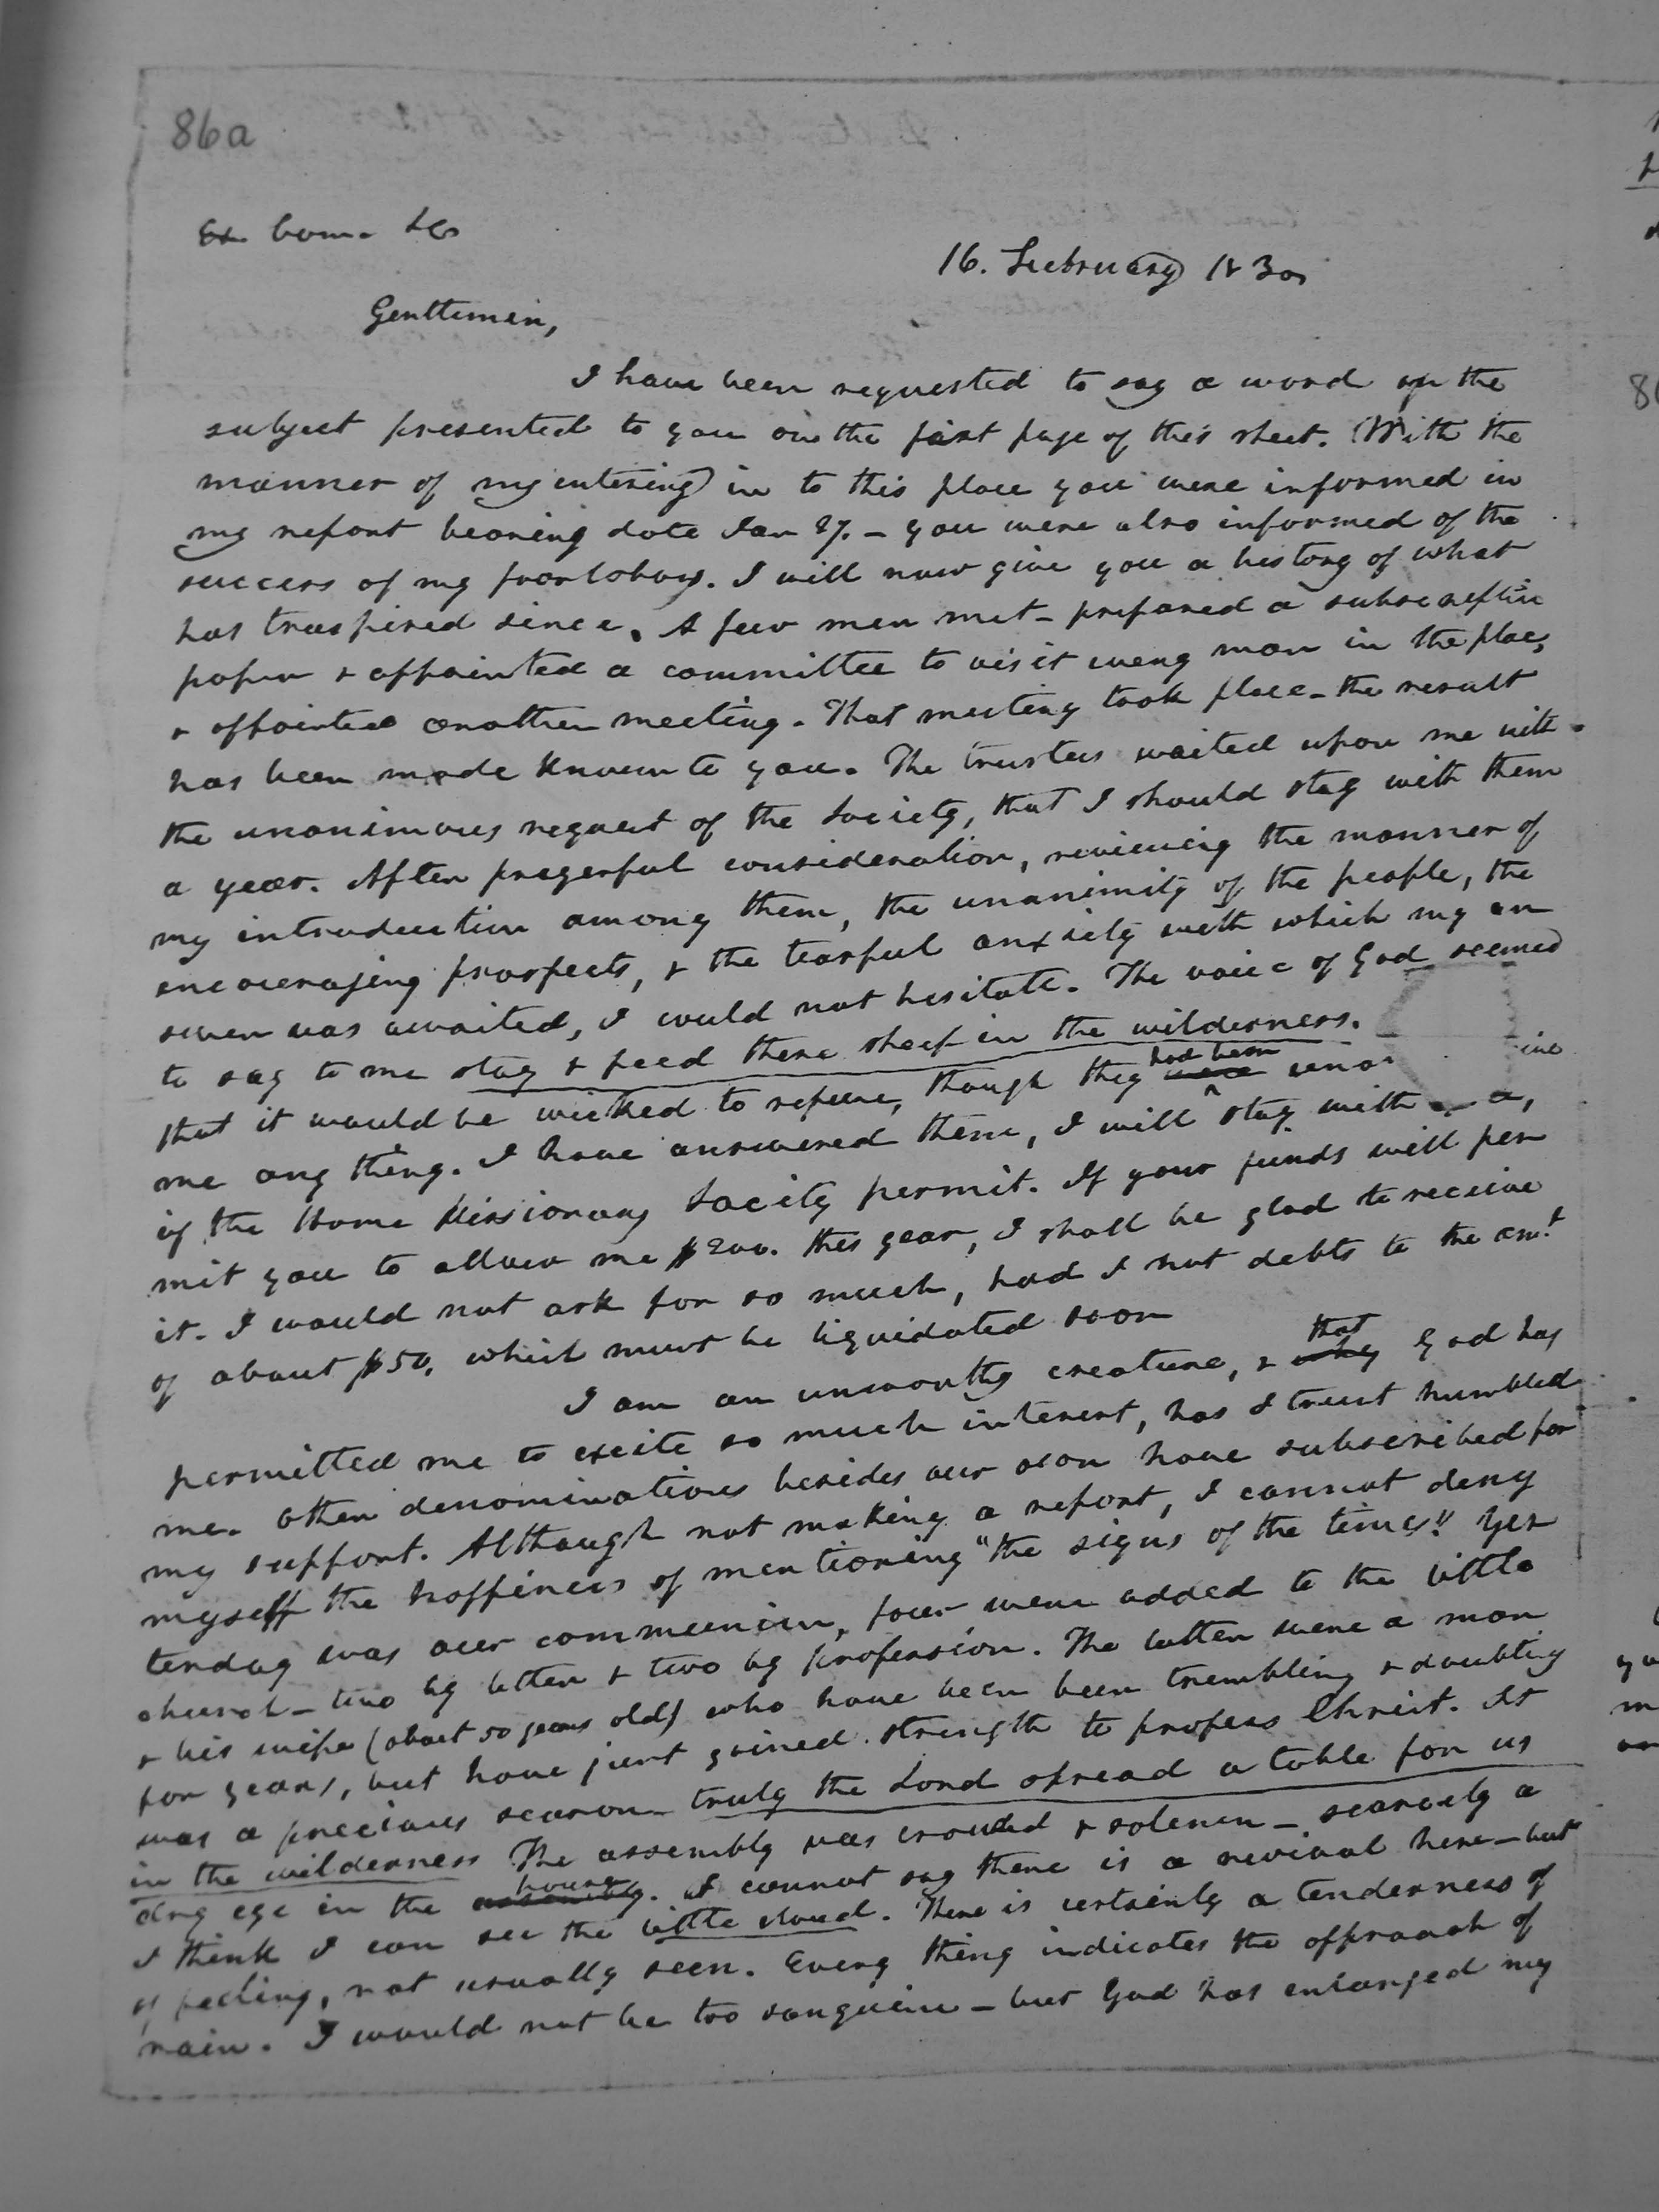 86a
Ex. Com. &c
16. Feebruary 1830
Gentlemen,
I have been requested to say a word on the
subject presented to you on the first page of this sheet. With the
manner of my entering in to this place you were informed in
my report bearing date Jan 27. – you were also informed of the
success of my poor labors. I will now give you a history of what
has traspired since. A few men met – prepared a subscription
paper & appointed a committee to visit every man in the place,
& appointed another meeting. That meeting took place – the result
has been made known to you. The trustees waited upon me with
the unanimous request of the Society, that I should stay with them
a year. After prayerful consideration, reviewing the manner of
my introduction among them, the unanimity of the people, the
encouraging prospects, & the tearful anxiety with which my an
swer was awaited, I could not hesitate. The voice of God seemed
to say to me stay & feed these sheep in the wilderness.
that it would be wicked to refuse, though they were had been
me any thing. I have answered them, I will stay with
if the Home Missionary Socity permit. If your funds will per
mit you to allow me $200. this year, I shall be glad to receive
it. I would not ask for so much, had I not debts to the amt
of about $50, which must be liquidated soon
I am an unworthy creature, & why that God has
permitted me to excite so much interest, has I trust humbled
me. Other denominations besides our own have subscribed for
my support. Although not making a report, I cannot deny
myself the happiness of mentioning "the signs of the times". Yes
terday was our communion, four were added to the little
church – two by letter & two by profession. The latter were a man
& his wife (about 50 years old) who have been been trembling & doubting
for years, but have just gained strength to profess Christ. It
was a precious season – truly the Lord spread a table for us
in the wilderness The assembly was crowded & solemn – scarcely a
dry eye in the assembly house. I cannot say there is a revival here – but
I think I can see the little cloud. There is certainly a tenderness of
of feeling, not usually seen. Every thing indicates the approach of
rain. I would not be too sanguine – but God has enlarged my